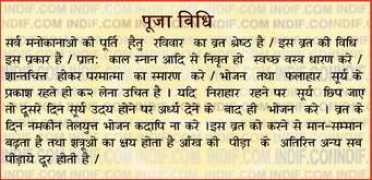 पूजा विधि
सर्व मनोकानाओ की पूर्ति हेतु रविवार का व्रत श्रेष्ठ है / इस व्रत की विधि
इस प्रकार है / प्रात: काल स्नान आदि से निवृत हो स्वच्छ वस्त्र धारण करे /
शान्तचित्त होकर परमात्मा का स्मारण करे / भोजन तथा फलाहार सूर्य के
प्रकाश रहते ही कर लेना उचित है । यदि निराहार रहने पर सूर्य छिप जाए
तो दूसरे दिन सूर्य उदय होने पर अर्ध्य देने के बाद ही भोजन करे । व्रत के
दिन नमकीन तेलयुत्त भोजन कदापि ना करे ।इस व्रत को करने से मान-सम्मान
बढ़ता है तथा शत्रुओं का क्षय होता है आँख की पीड़ा के अतिरित्त अन्य सब
पीड़ाये दूर होती है /